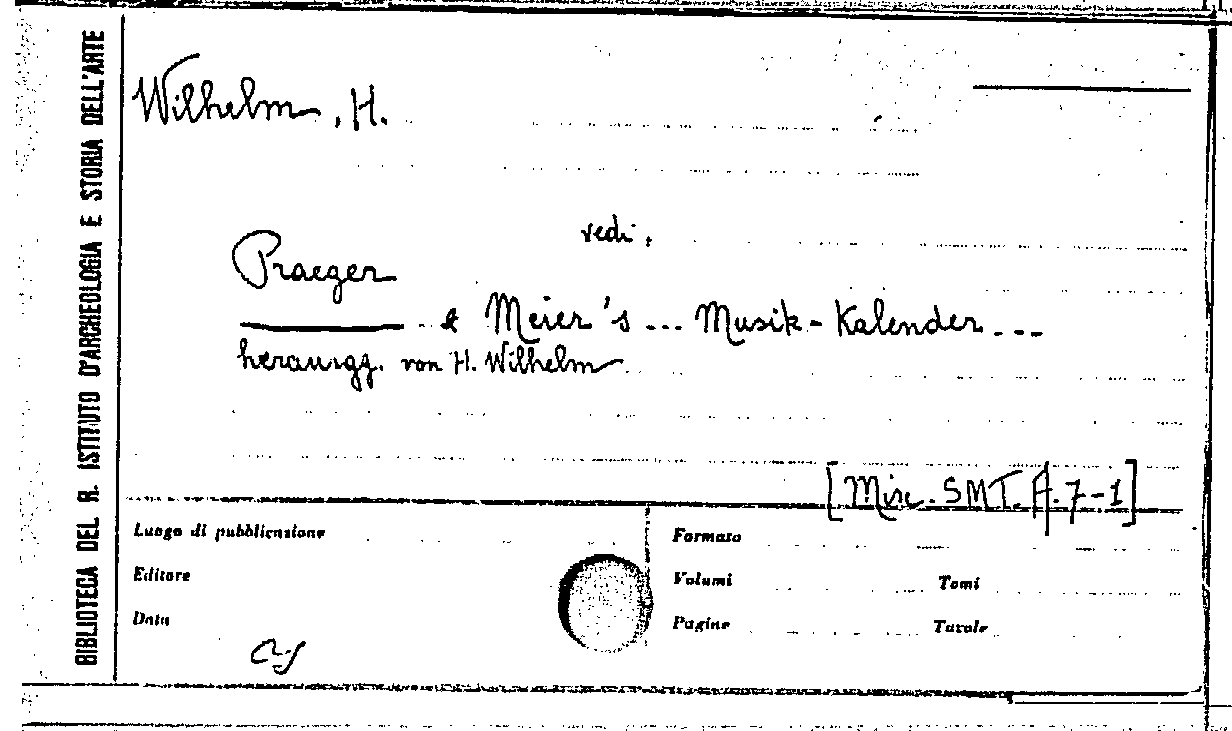 BIBLIOTECA DEL R. ISTITUTO D'ARCHEOLOGIA E STORIA DELL'ARTE
Wilhelm, H.
vedi:
Praeger
& Meier's ... Musik-Kalender ...
herausgg. von H. Wilhelm
[Misc. SMT. A. 7-1]
Luogo di pubblicazione
Formato
Editore
Volumi
Tomi
Data
Pagine
Tavole